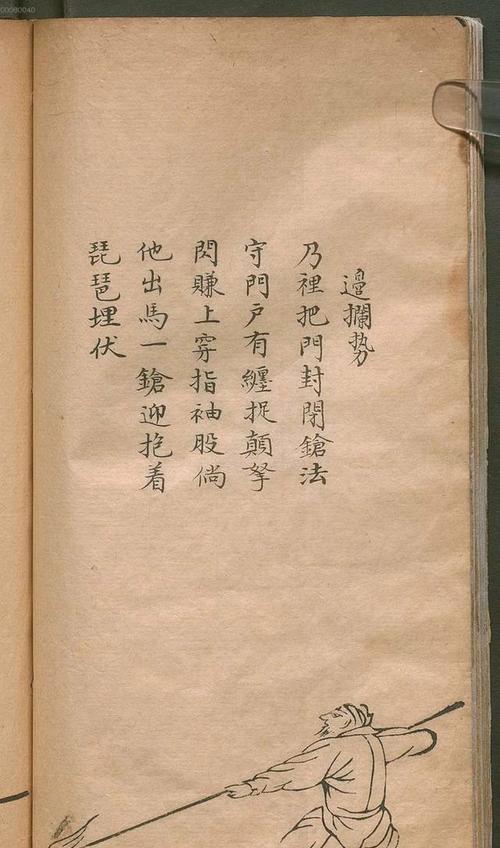 00080040
邊攔势
乃裡把門封閉鎗法
守門户有纏捉顛拏
閃賺上穿指袖股倘
他出馬一鎗迎抱着
琵琶埋伏